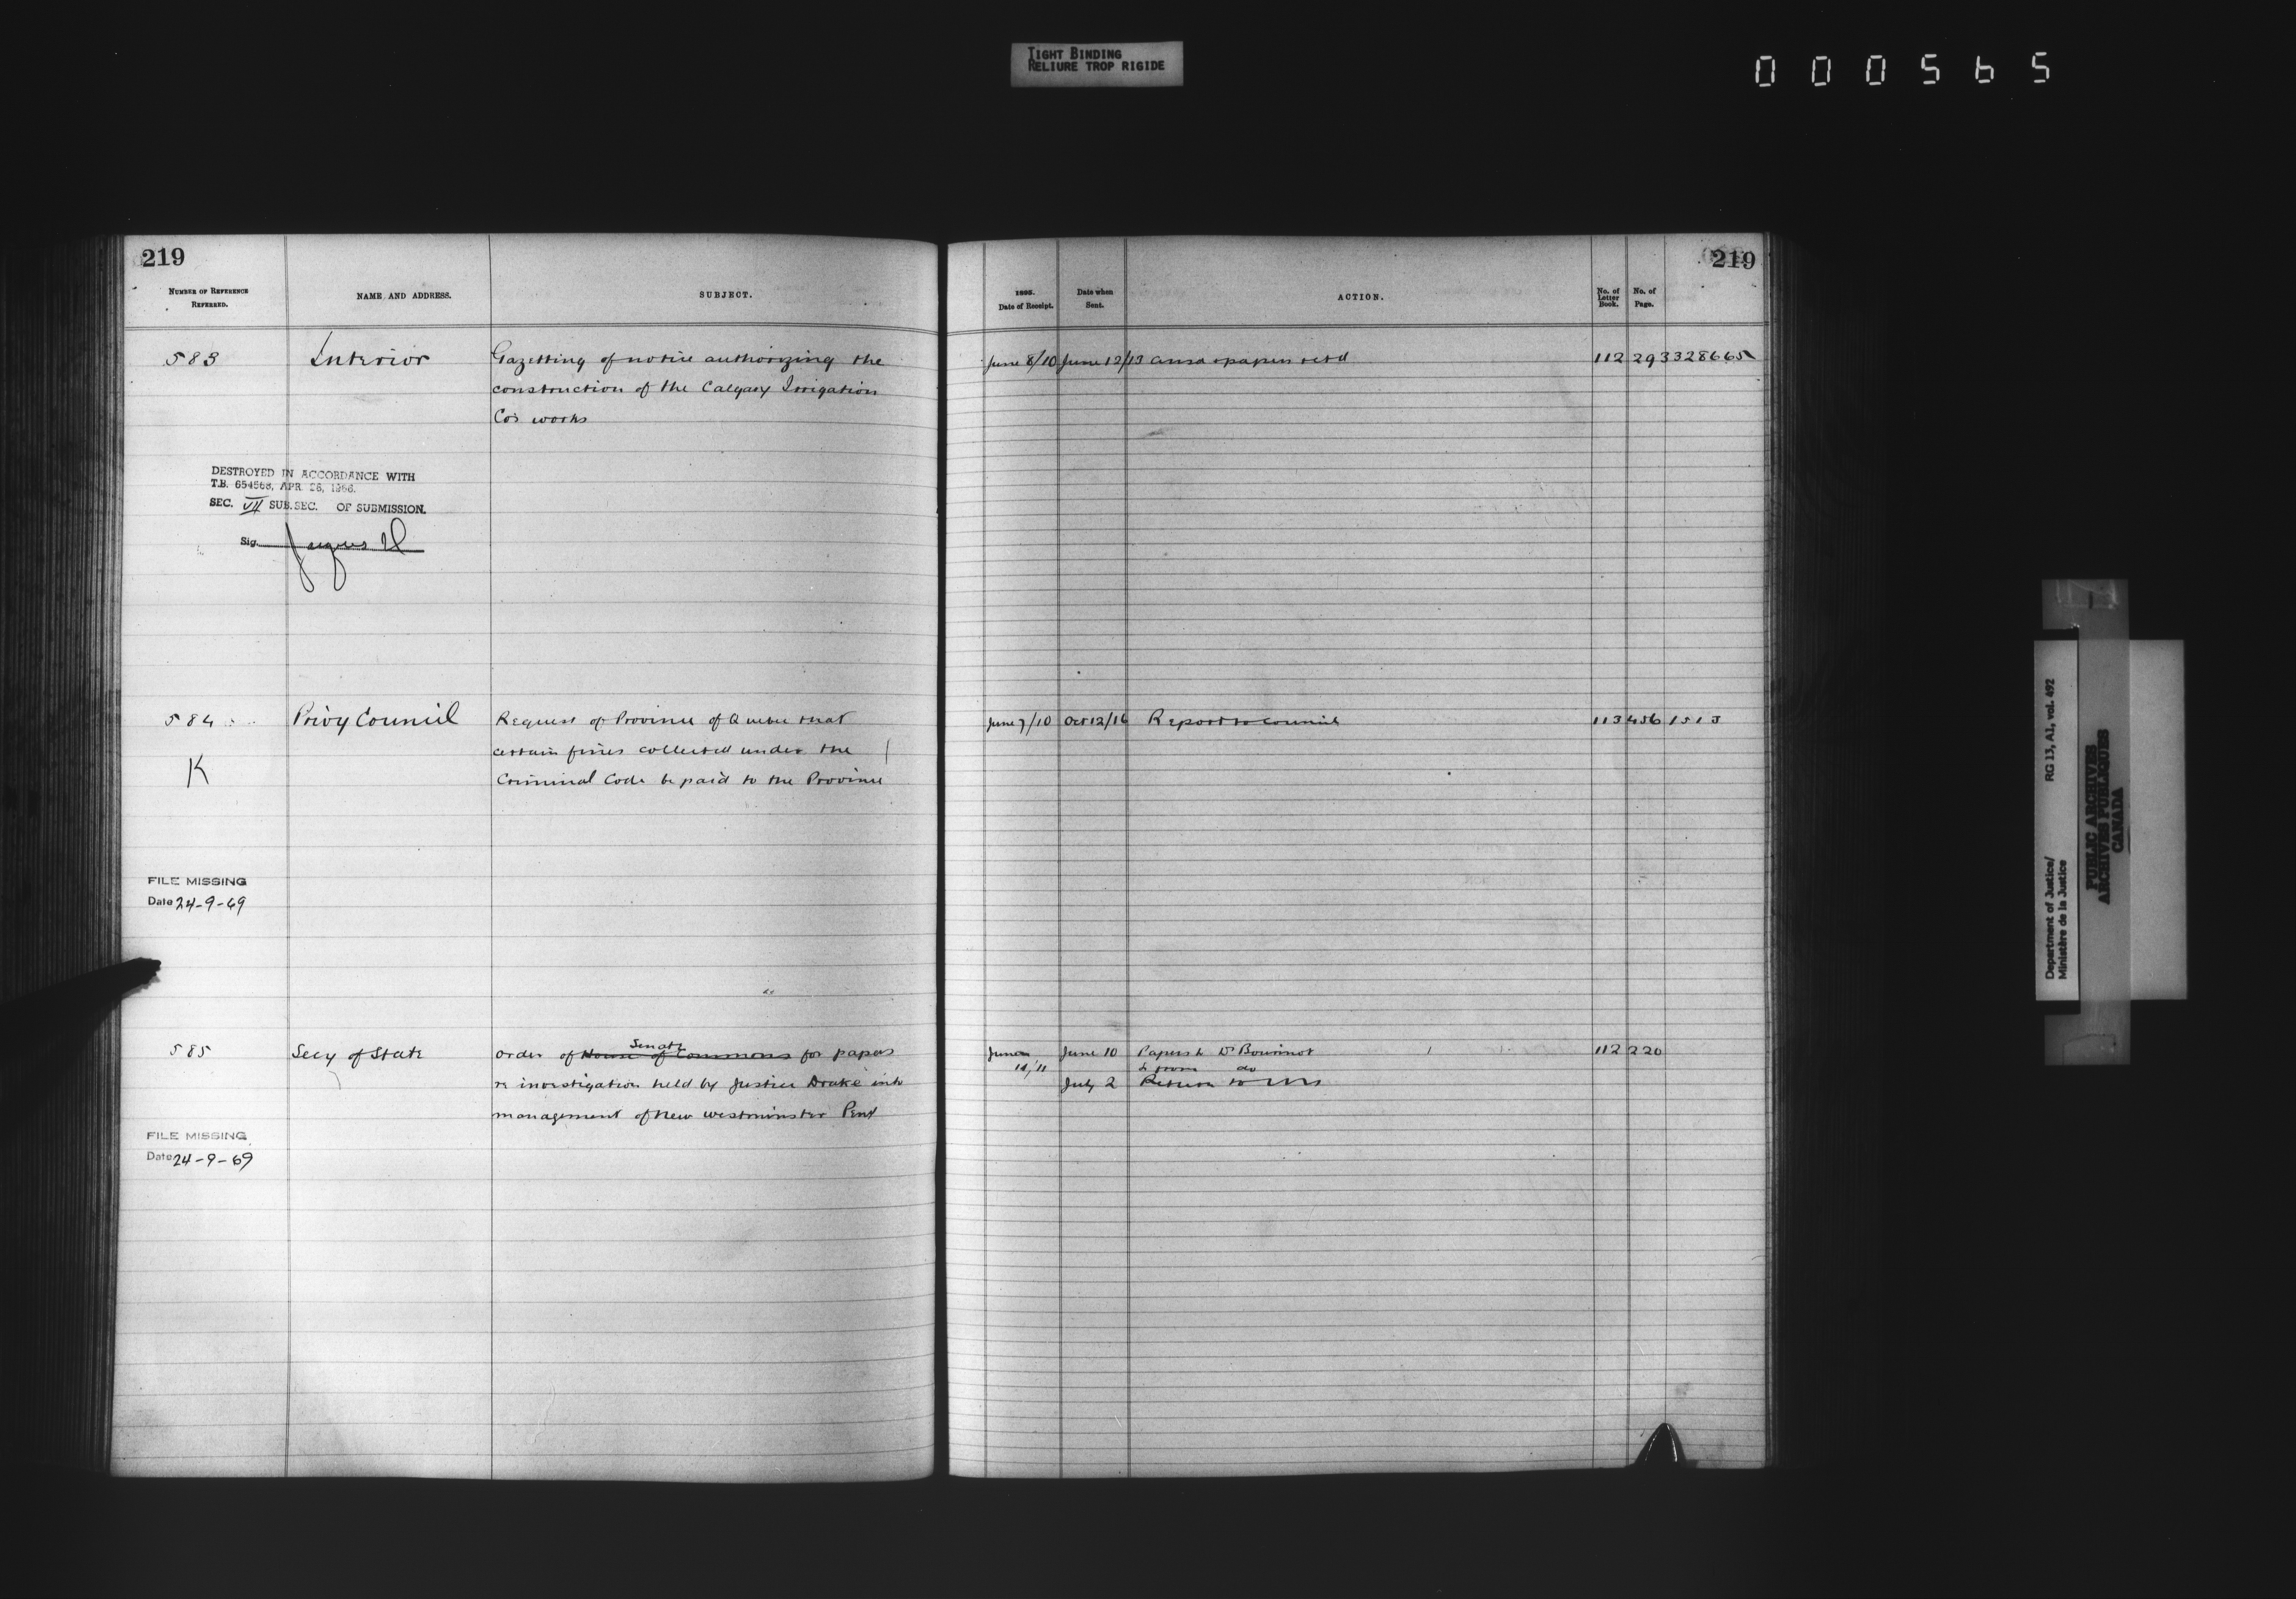 TIGHT BINDING
RELIURE TROP RIGIDE
000565
219
NUMBER OF REFERENCE REFERRED.
NAME AND ADDRESS.
SUBJECT.
583
Interior
Gazetting of notice authorizing the
construction of the Calgary Irrigation
Co's works
DESTROYED IN ACCORDANCE WITH
T.B. 654568, APR. 26, 1966.
SEC. VII SUB.SEC. OF SUBMISSION.
Sig.
584
Privy Council
Request of Province of Quebec that
certain fines collected under the
Criminal Code be paid to the Province
K
FILE MISSING
Date 24-9-69
585
Secy of State
Senate
Order of House of Commons for papers
re investigation held by Justice Drake into
management of New Westminster Pent
FILE MISSING
Date 24-9-69
219
1895.
Date of Receipt.
Date when
Sent.
ACTION.
No. of
Letter
Book.
No. of
Page.
June 8/10 June 12/13 Ansd & papers retd 112 293
June 7/10 Oct 12/16 Report to Council 113 456 1513
June 10/11
June 10 Papers to Dr Bourinot 112 220
do
July 2 Return to
Department of Justice/ RG 13, A1, vol. 492
Ministère de la Justice
PUBLIC ARCHIVES
ARCHIVES PUBLIQUES
CANADA